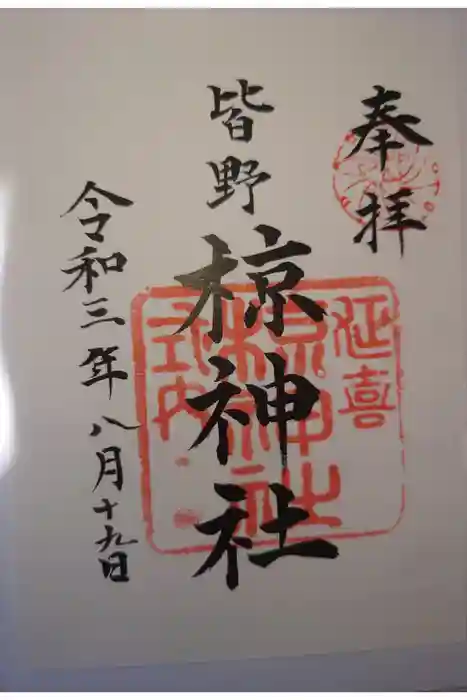 奉拝
皆野
椋神社
令和三年八月十九日
延喜
椋神社
式内